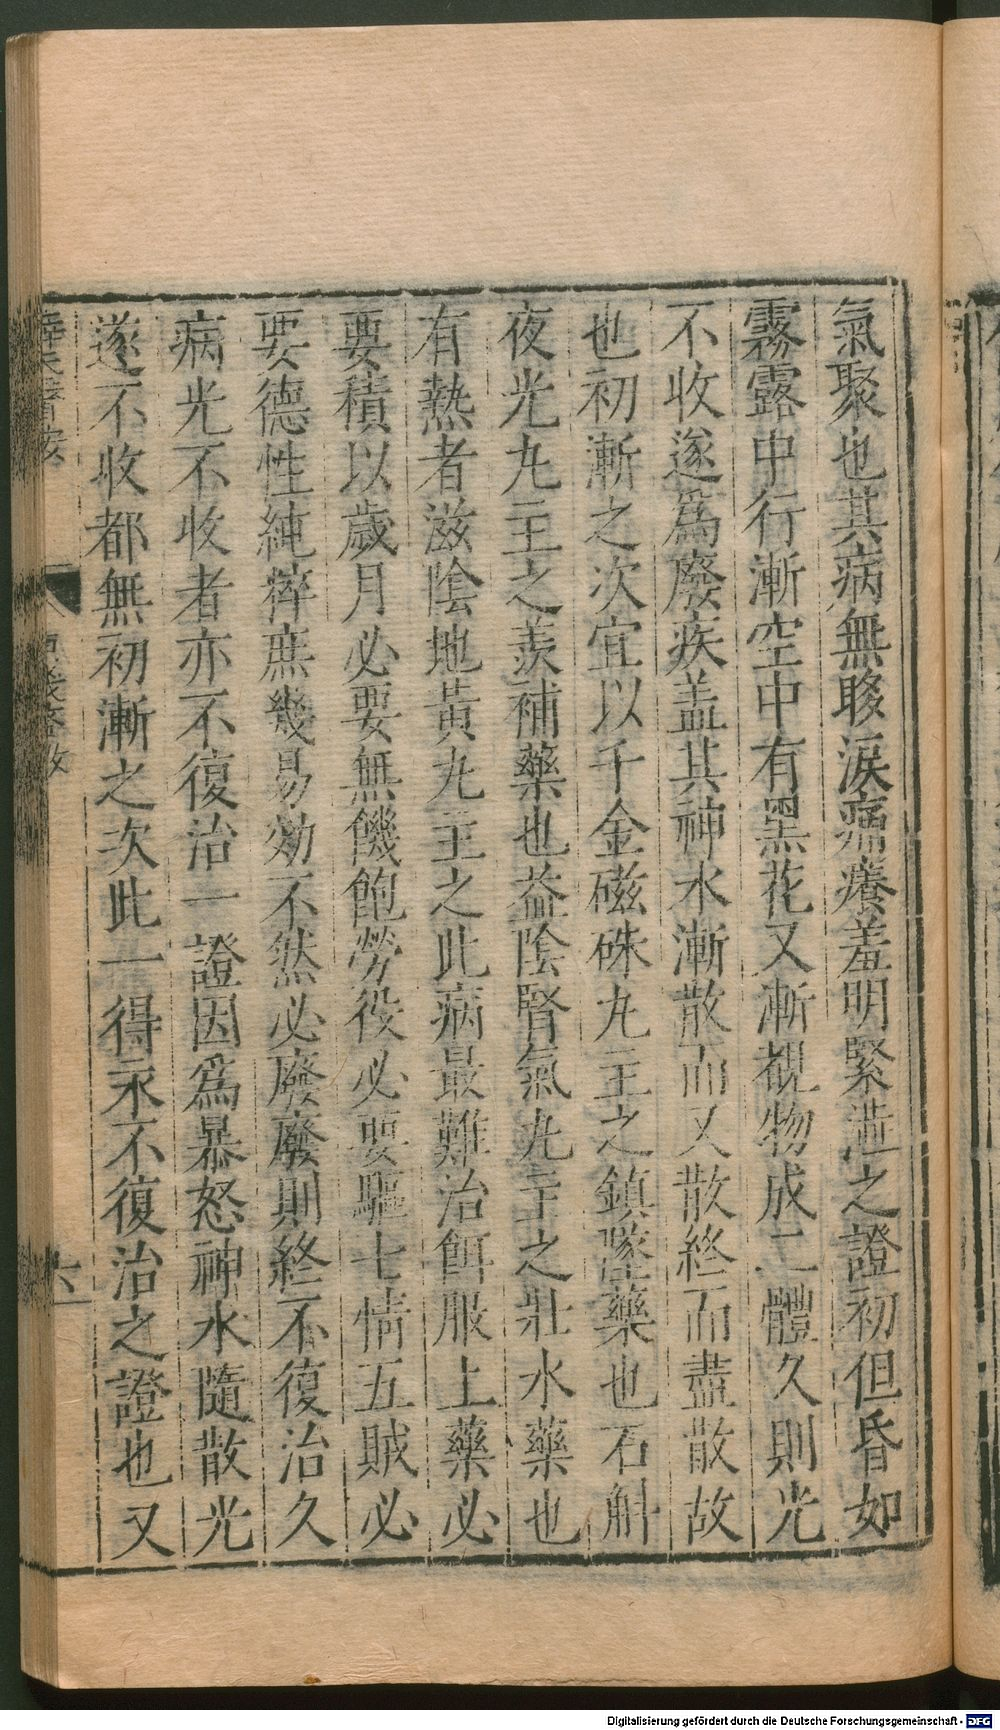 氣聚也其病無眵淚痛癢羞明緊澁之證初但昏如
霧露中行漸空中有黑花又漸覩物成二體久則光
不收遂爲廢疾盖其神水漸散而又散終而盡散故
也初漸之次宜以千金磁硃丸主之鎮墜藥也石斛
夜光丸主之羨補藥也益陰腎氣丸主之壯水藥也
有熱者滋陰地黃丸主之此病最難治餌服上藥必
要積以歲月必要無饑飽勞役必要驅七情五賊必
要德性純粹庶幾易効不然必廢廢則終不復治久
病光不收者亦不復治一證因爲暴怒神水隨散光
遂不收都無初漸之次此一得永不復治之證也又
六
Digitalisierung gefördert durch die Deutsche Forschungsgemeinschaft - DFG